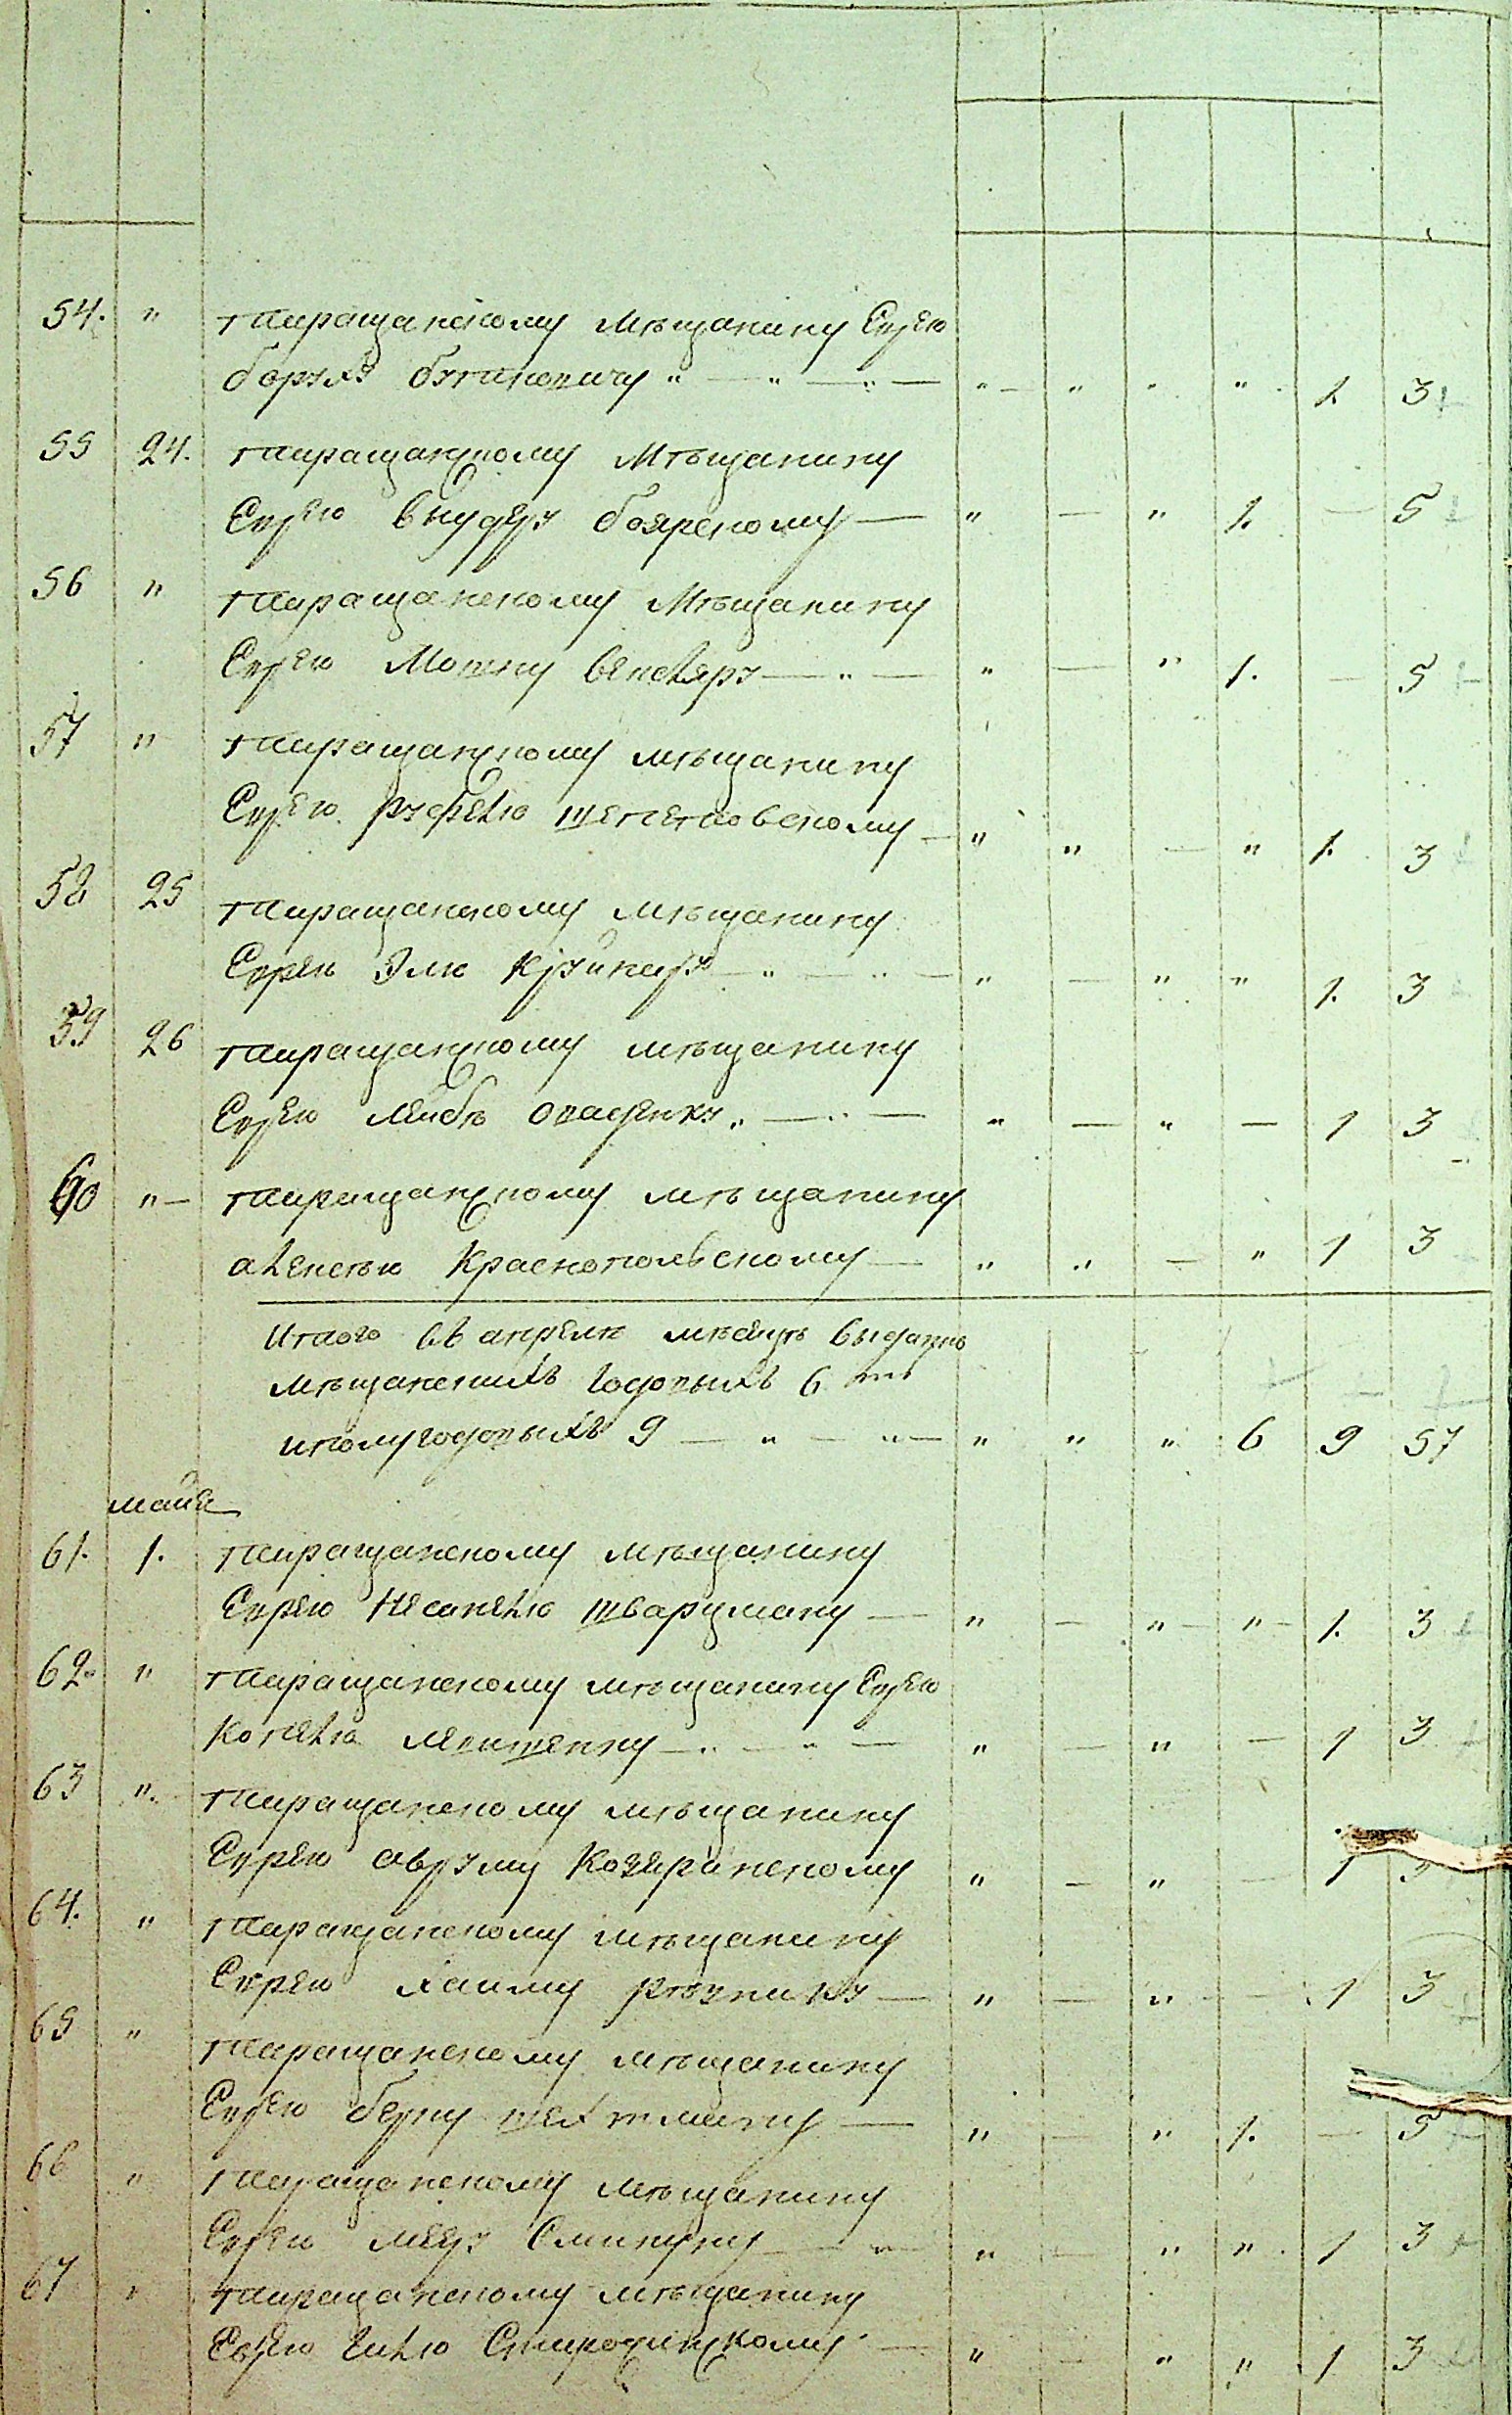 54. " таращанскому мѣщанину Еврею
Боруху Бутакевичу " — " — " — " — " " " 1. 3
55 24. таращанскому мѣщанину
Еврею боярскому — " — " 1. — 5
56 " таращанскому мѣщанину
Еврею Мошку векслеру — " — " — " 1. — 5
57 " таращанскому мѣщанину
Еврею рувелю — " " — " 1. 3
58 25 таращанскому мѣщанину
Еврею Элю — " — " — " — " " 1. 3
59 26 таращанскому мѣщанину
Еврею лейбѣ " — " — " — " — 1 3
60 " — таращанскому мѣщанину
алексѣю краснопольскому — " " — " 1 3
Итого въ апрелѣ мѣсяцѣ выданно
мѣщанскихъ годовыхъ 6 ть
иполугодовыхъ 9 — " — " — " " " 6 9 57
маия
61. 1. таращанскому мѣщанину
Еврею шварцману — " — " — " — 1. 3
62. " таращанскому мѣщанину Еврею
— " — " — " — " — 1 3
63 ". таращанскому мѣщанину
Еврею авруму козяринскому " — " — 1 3
64. " таращанскому мѣщанину
Еврею хаиму рѣзнику — " — " — 1 3
65 " таращанскому мѣщанину
Еврею берку — " — " 1. — 5
66 " таращанскому мѣщанину
Еврею мееру — " — " — " " 1 3
67 " таращанскому мѣщанину
Еврею — " — " " 1 3